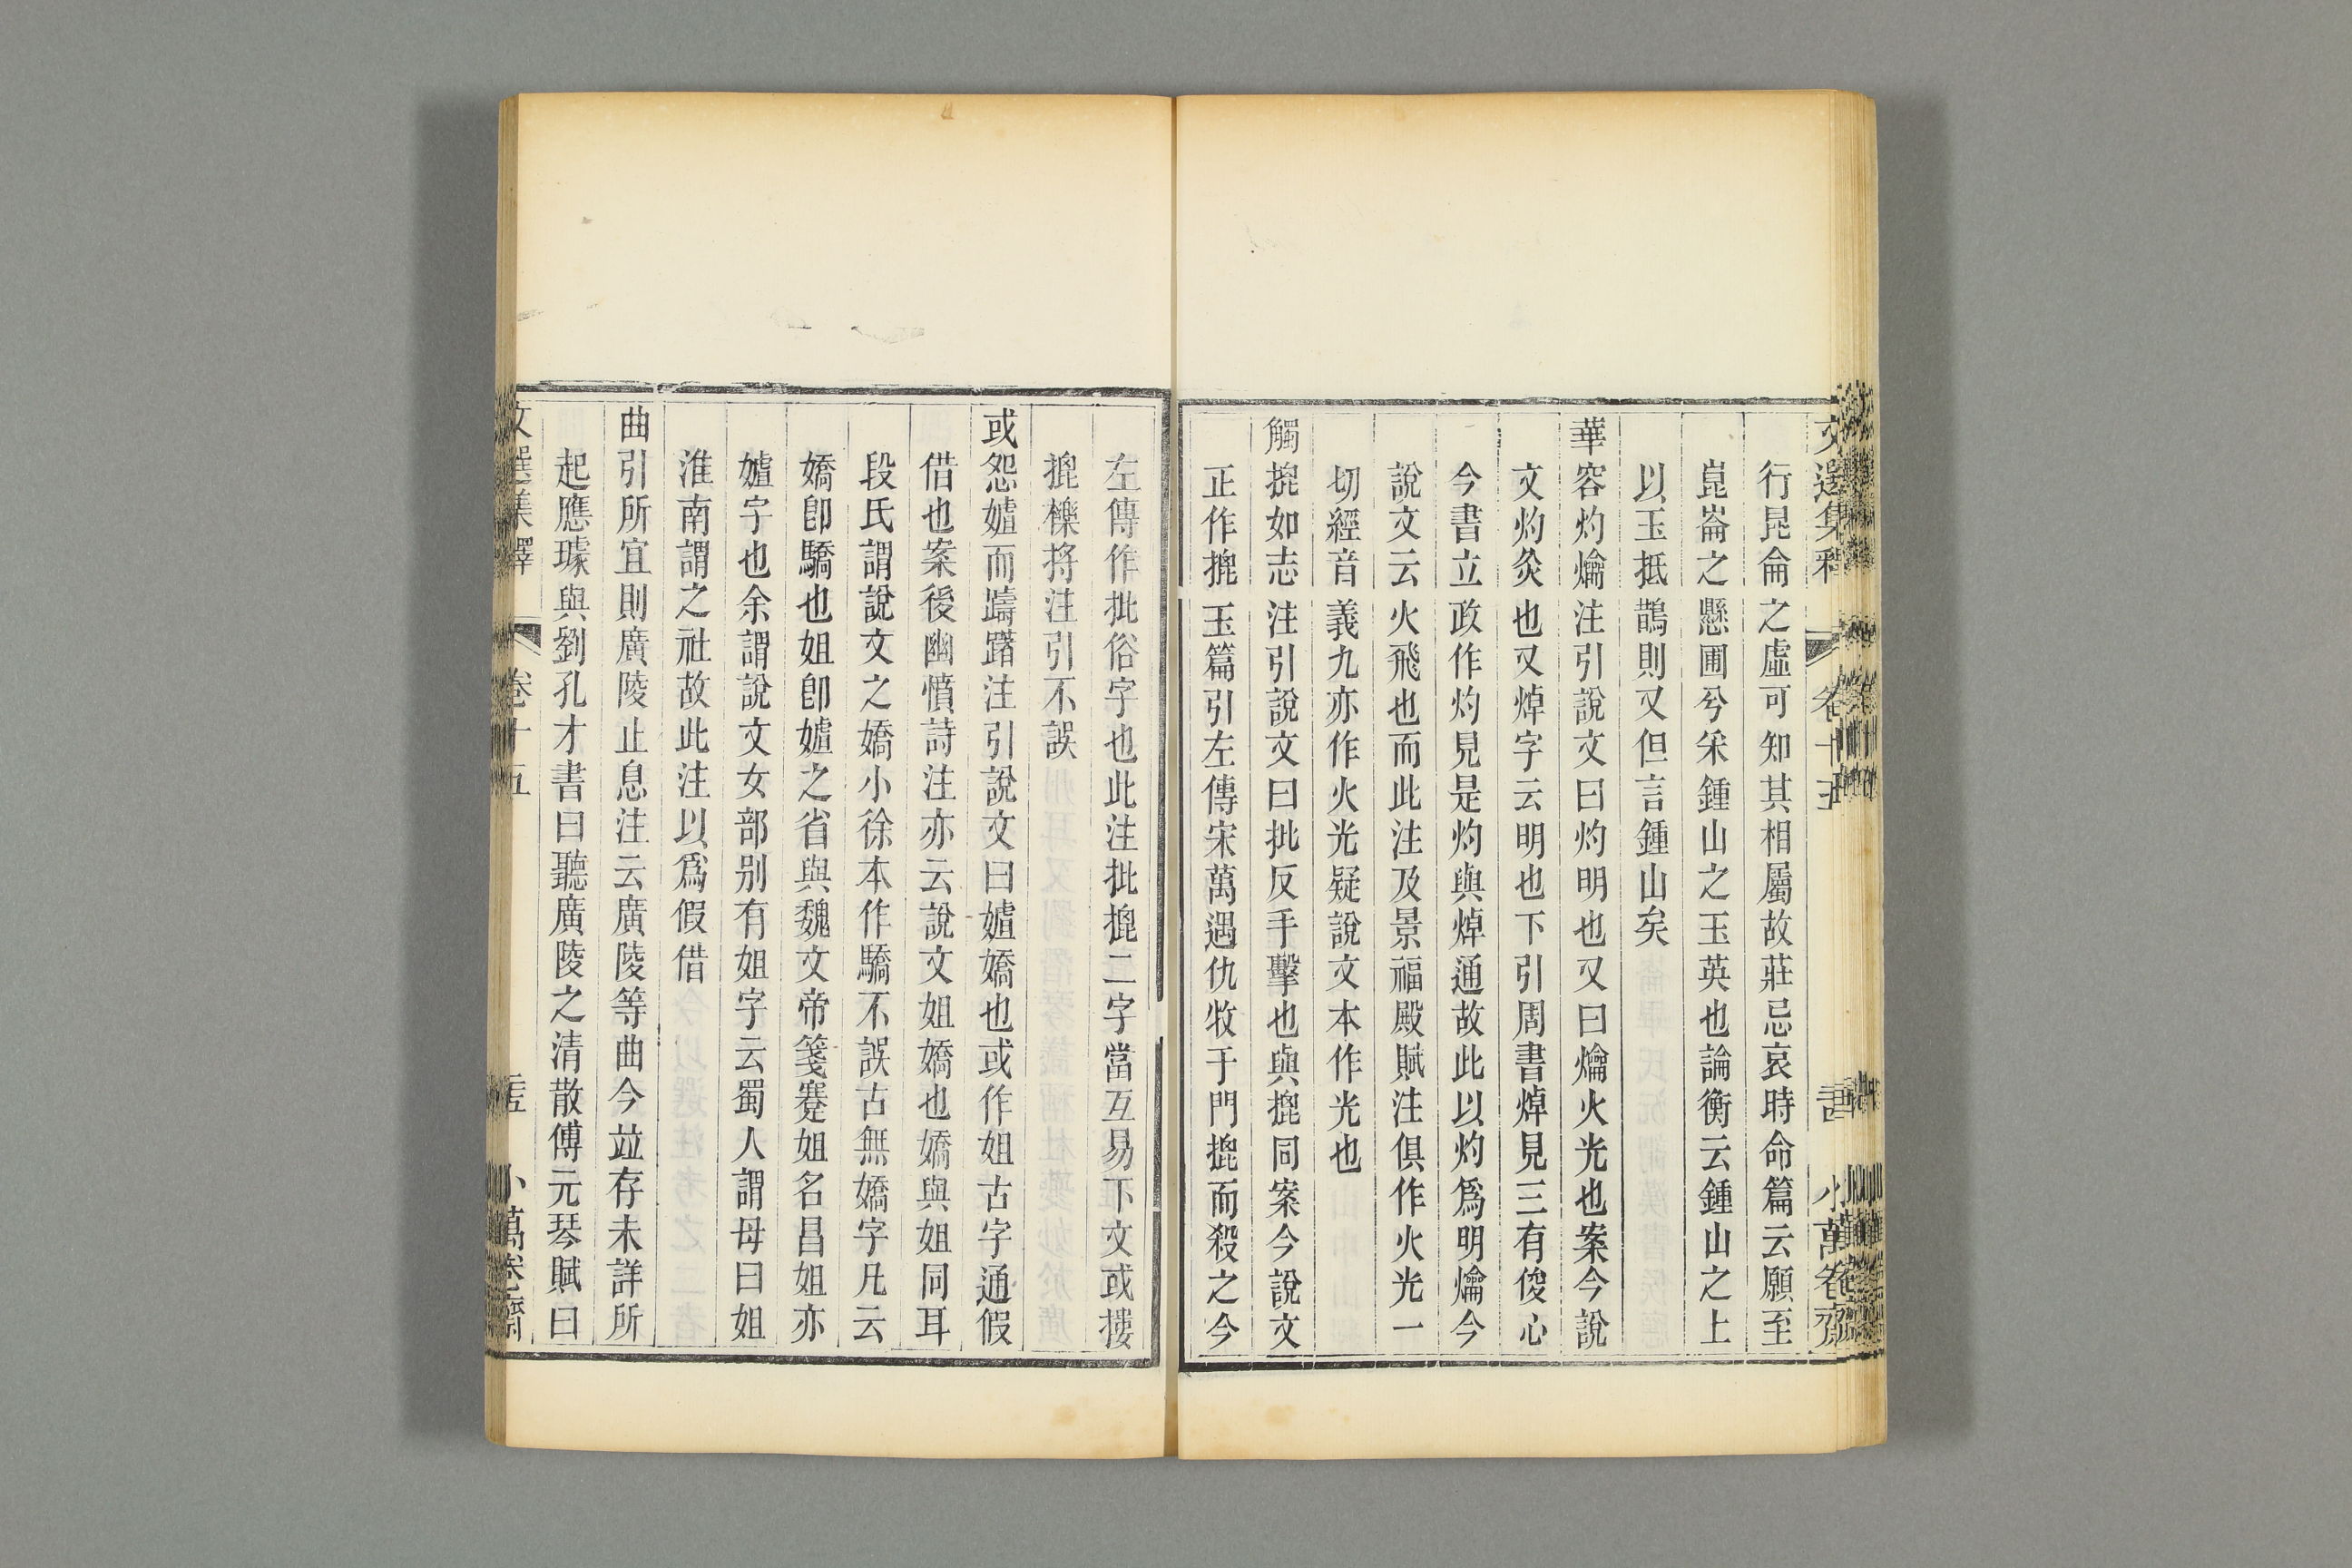 文選集釋 卷十五 小萬卷齋
行昆侖之虛可知其相屬故莊忌哀時命篇云願至
崑崙之懸圃兮采鍾山之玉英也論衡云鍾山之上
以玉抵鵲則又但言鍾山矣
華容灼爚注引說文曰灼明也又曰爚火光也案今說
文灼灸也又焯字云明也下引周書焯見三有俊心
今書立政作灼見是灼與焯通故此以灼爲明爚今
說文云火飛也而此注及景福殿賦注俱作火光一
切經音義九亦作火光疑說文本作光也
觸㧙如志注引說文曰批反手擊也與㧙同案今說文
正作㧙玉篇引左傳宋萬遇仇牧于門㧙而殺之今
左傳作批俗字也此注批㧙二字當互易下文或摟
㧙櫟捋注引不誤
或怨㜘而躊躇注引說文曰㜘嬌也或作姐古字通假
借也案後幽憤詩注亦云說文姐嬌也嬌與姐同耳
段氏謂說文之嬌小徐本作驕不誤古無嬌字凡云
嬌卽驕也姐卽㜘之省與魏文帝箋蹇姐名昌姐亦
㜘字也余謂說文女部別有姐字云蜀人謂母曰姐
淮南謂之社故此注以爲假借
曲引所宜則廣陵止息注云廣陵等曲今竝存未詳所
起應璩與劉孔才書曰聽廣陵之清散傅元琴賦曰
文選集釋 卷十五 小萬卷齋